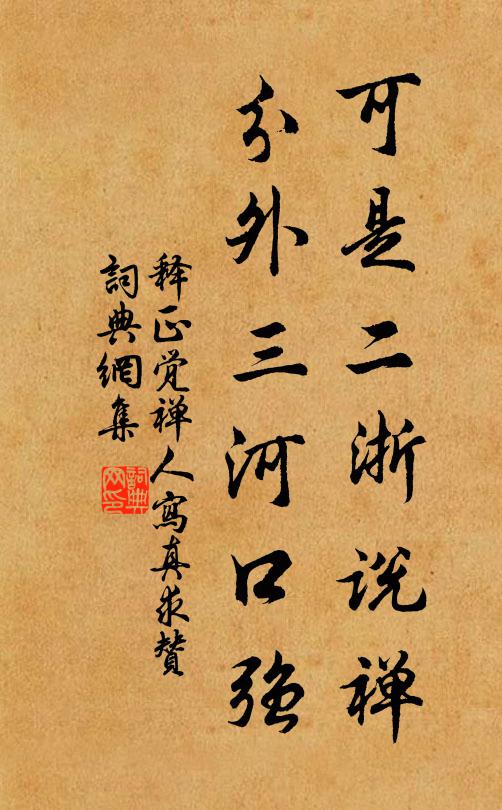 可是二浙说禅
分外三河口强
释正觉禅人寫真求赞
詞典網集
詞典网印